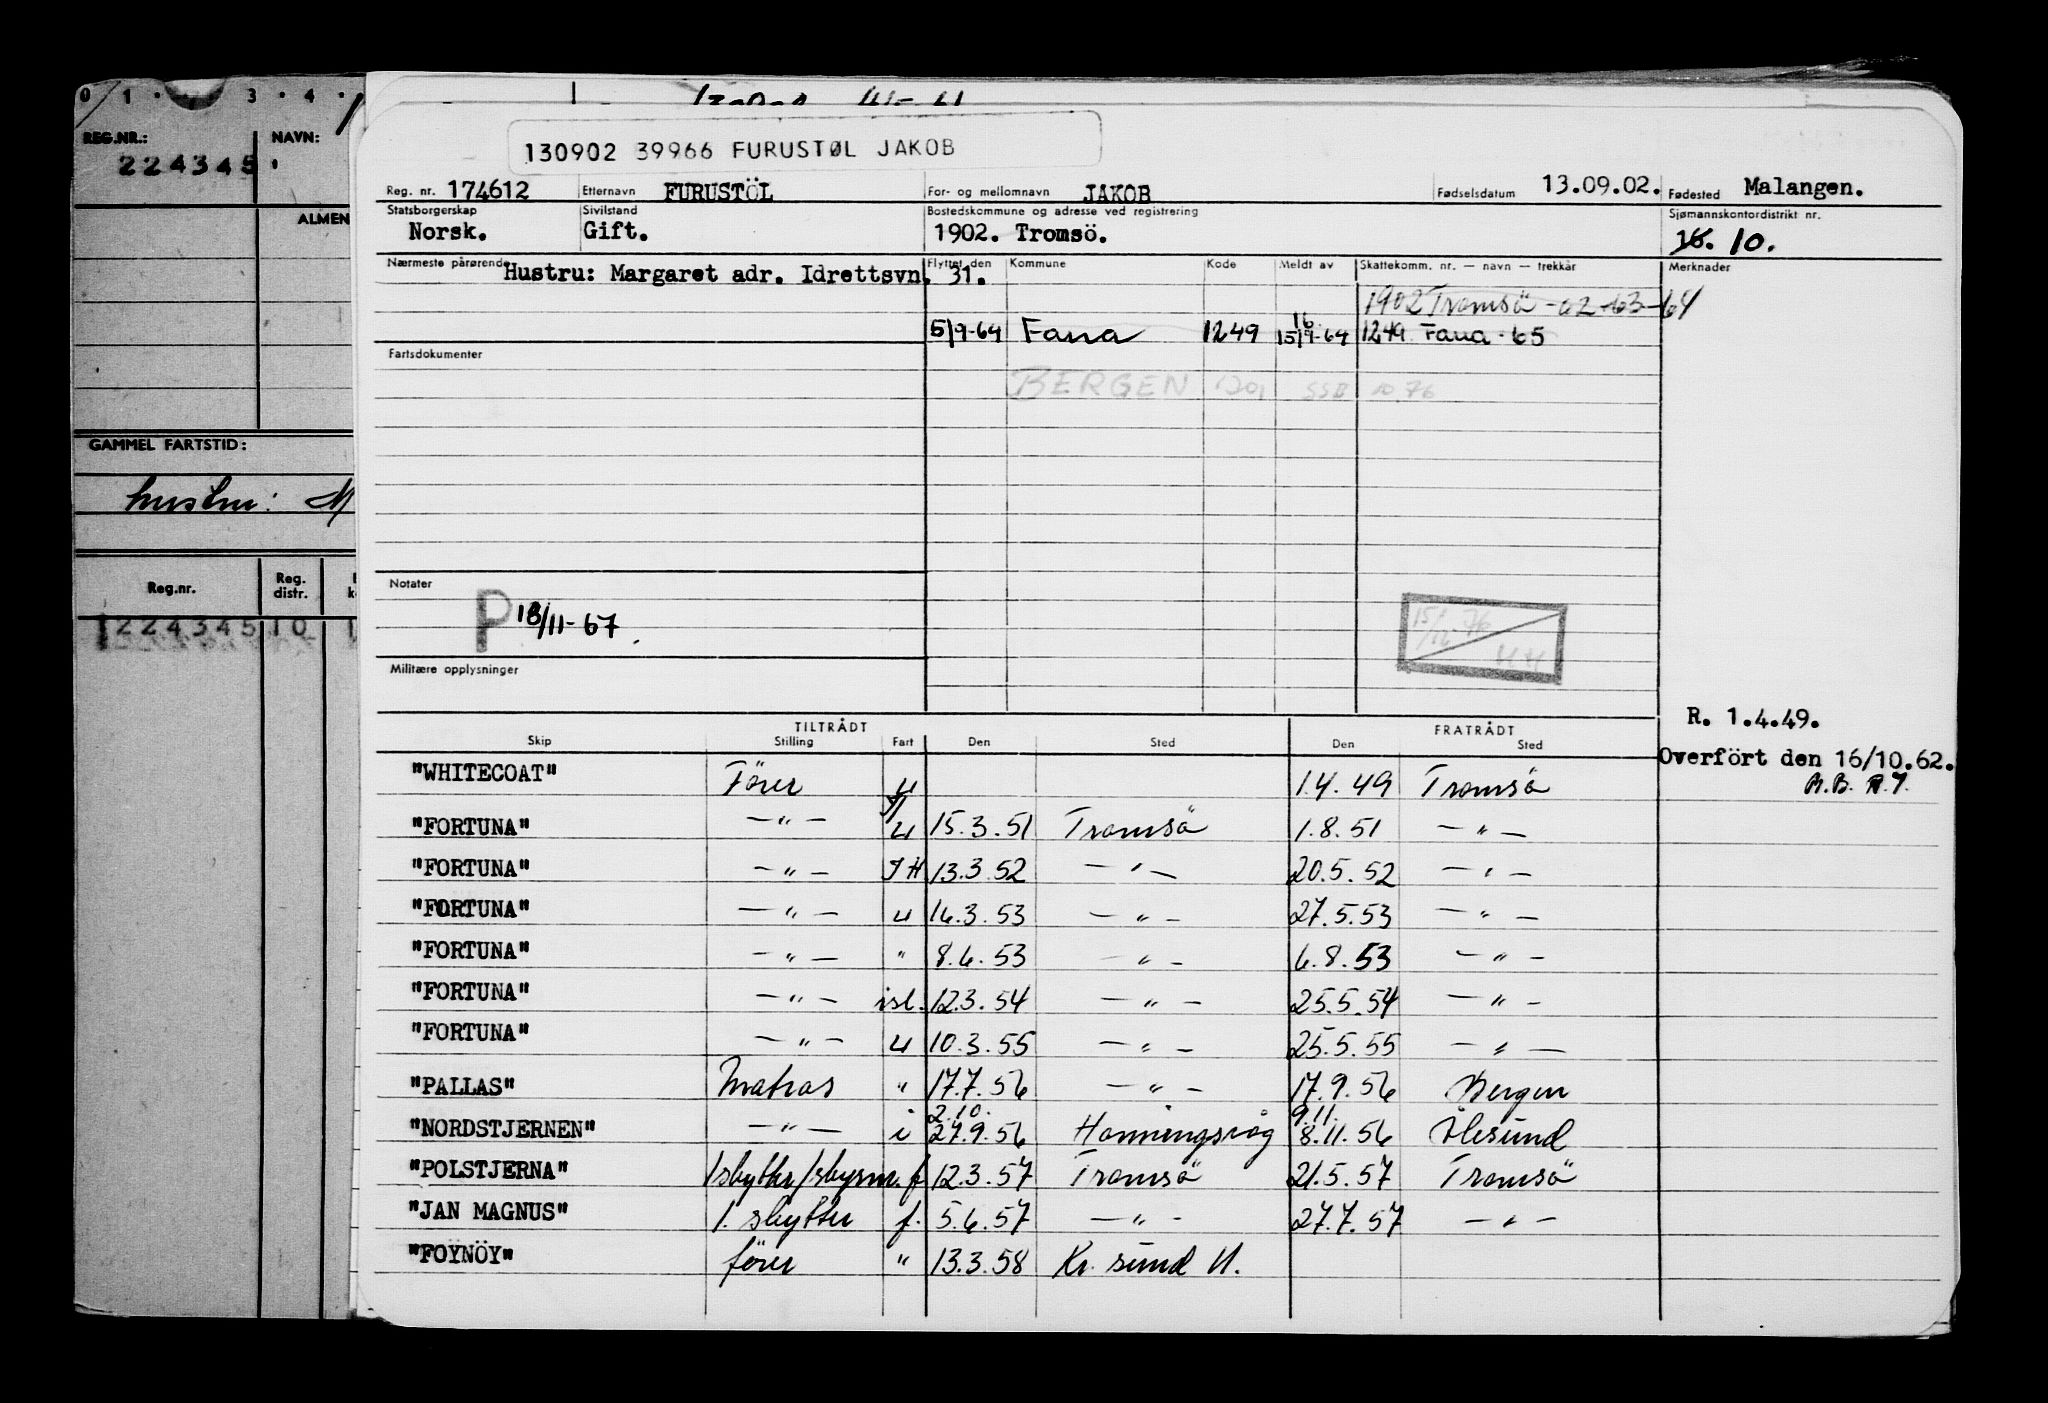 0 1 · 3 · 4 ·
REG.NR.: NAVN:
224345
ALMEN
GAMMEL FARTSTID:
hustru: M
Reg.nr. Reg. distr.
224345 10
130902 39966 FURUSTØL JAKOB
Reg. nr. 174612 Etternavn FURUSTÖL For- og mellomnavn JAKOB Fødselsdatum 13.09.02. Fødested Malangen.
Statsborgerskap Sivilstand Bostedskommune og adresse ved registrering Sjømannskontordistrikt nr.
Norsk. Gift. 1902. Tromsö. 16. 10.
Nærmeste pårørende Hustru: Margaret adr. Idrettsvn. 31. Flyttet den Kommune Kode Meldt av Skattekomm. nr. — navn — trekkår Merknader
1902 Tromsö -62-63-64
5/9-64 Fana 1249 16 15/9-64 1249 Fana - 65
Fartsdokumenter
BERGEN 1201 SSB 10 76
Notater
P 18/11-67.
15/12-76
HH
Militære opplysninger
R. 1.4.49.
TILTRÅDT FRATRÅDT
Skip Stilling Fart Den Sted Den Sted
Overfört den 16/10.62.
"WHITECOAT" Förer u 1.4.49 Tromsö
"FORTUNA" —"— u 15.3.51 Tromsö 1.8.51 —"—
"FORTUNA" —"— IH 13.3.52 —"— 20.5.52 —"—
"FORTUNA" —"— u 16.3.53 —"— 27.5.53 —"—
"FORTUNA" —"— " 8.6.53 —"— 6.8.53 —"—
"FORTUNA" —"— isl. 12.3.54 —"— 25.5.54 —"—
"FORTUNA" —"— u 10.3.55 —"— 25.5.55 —"—
"PALLAS" Matros " 17.7.56 —"— 17.9.56 Bergen
2.10. 9.11.
"NORDSTJERNEN" —"— i 27.9.56 Honningsvåg 8.11.56 Ålesund
"POLSTJERNA" 1 skytter/skysm. f 12.3.57 Tromsö 21.5.57 Tromsö
"JAN MAGNUS" 1. skytter f. 5.6.57 —"— 27.7.57 —"—
"FOYNÖY" förer " 13.3.58 Kr. sund N.